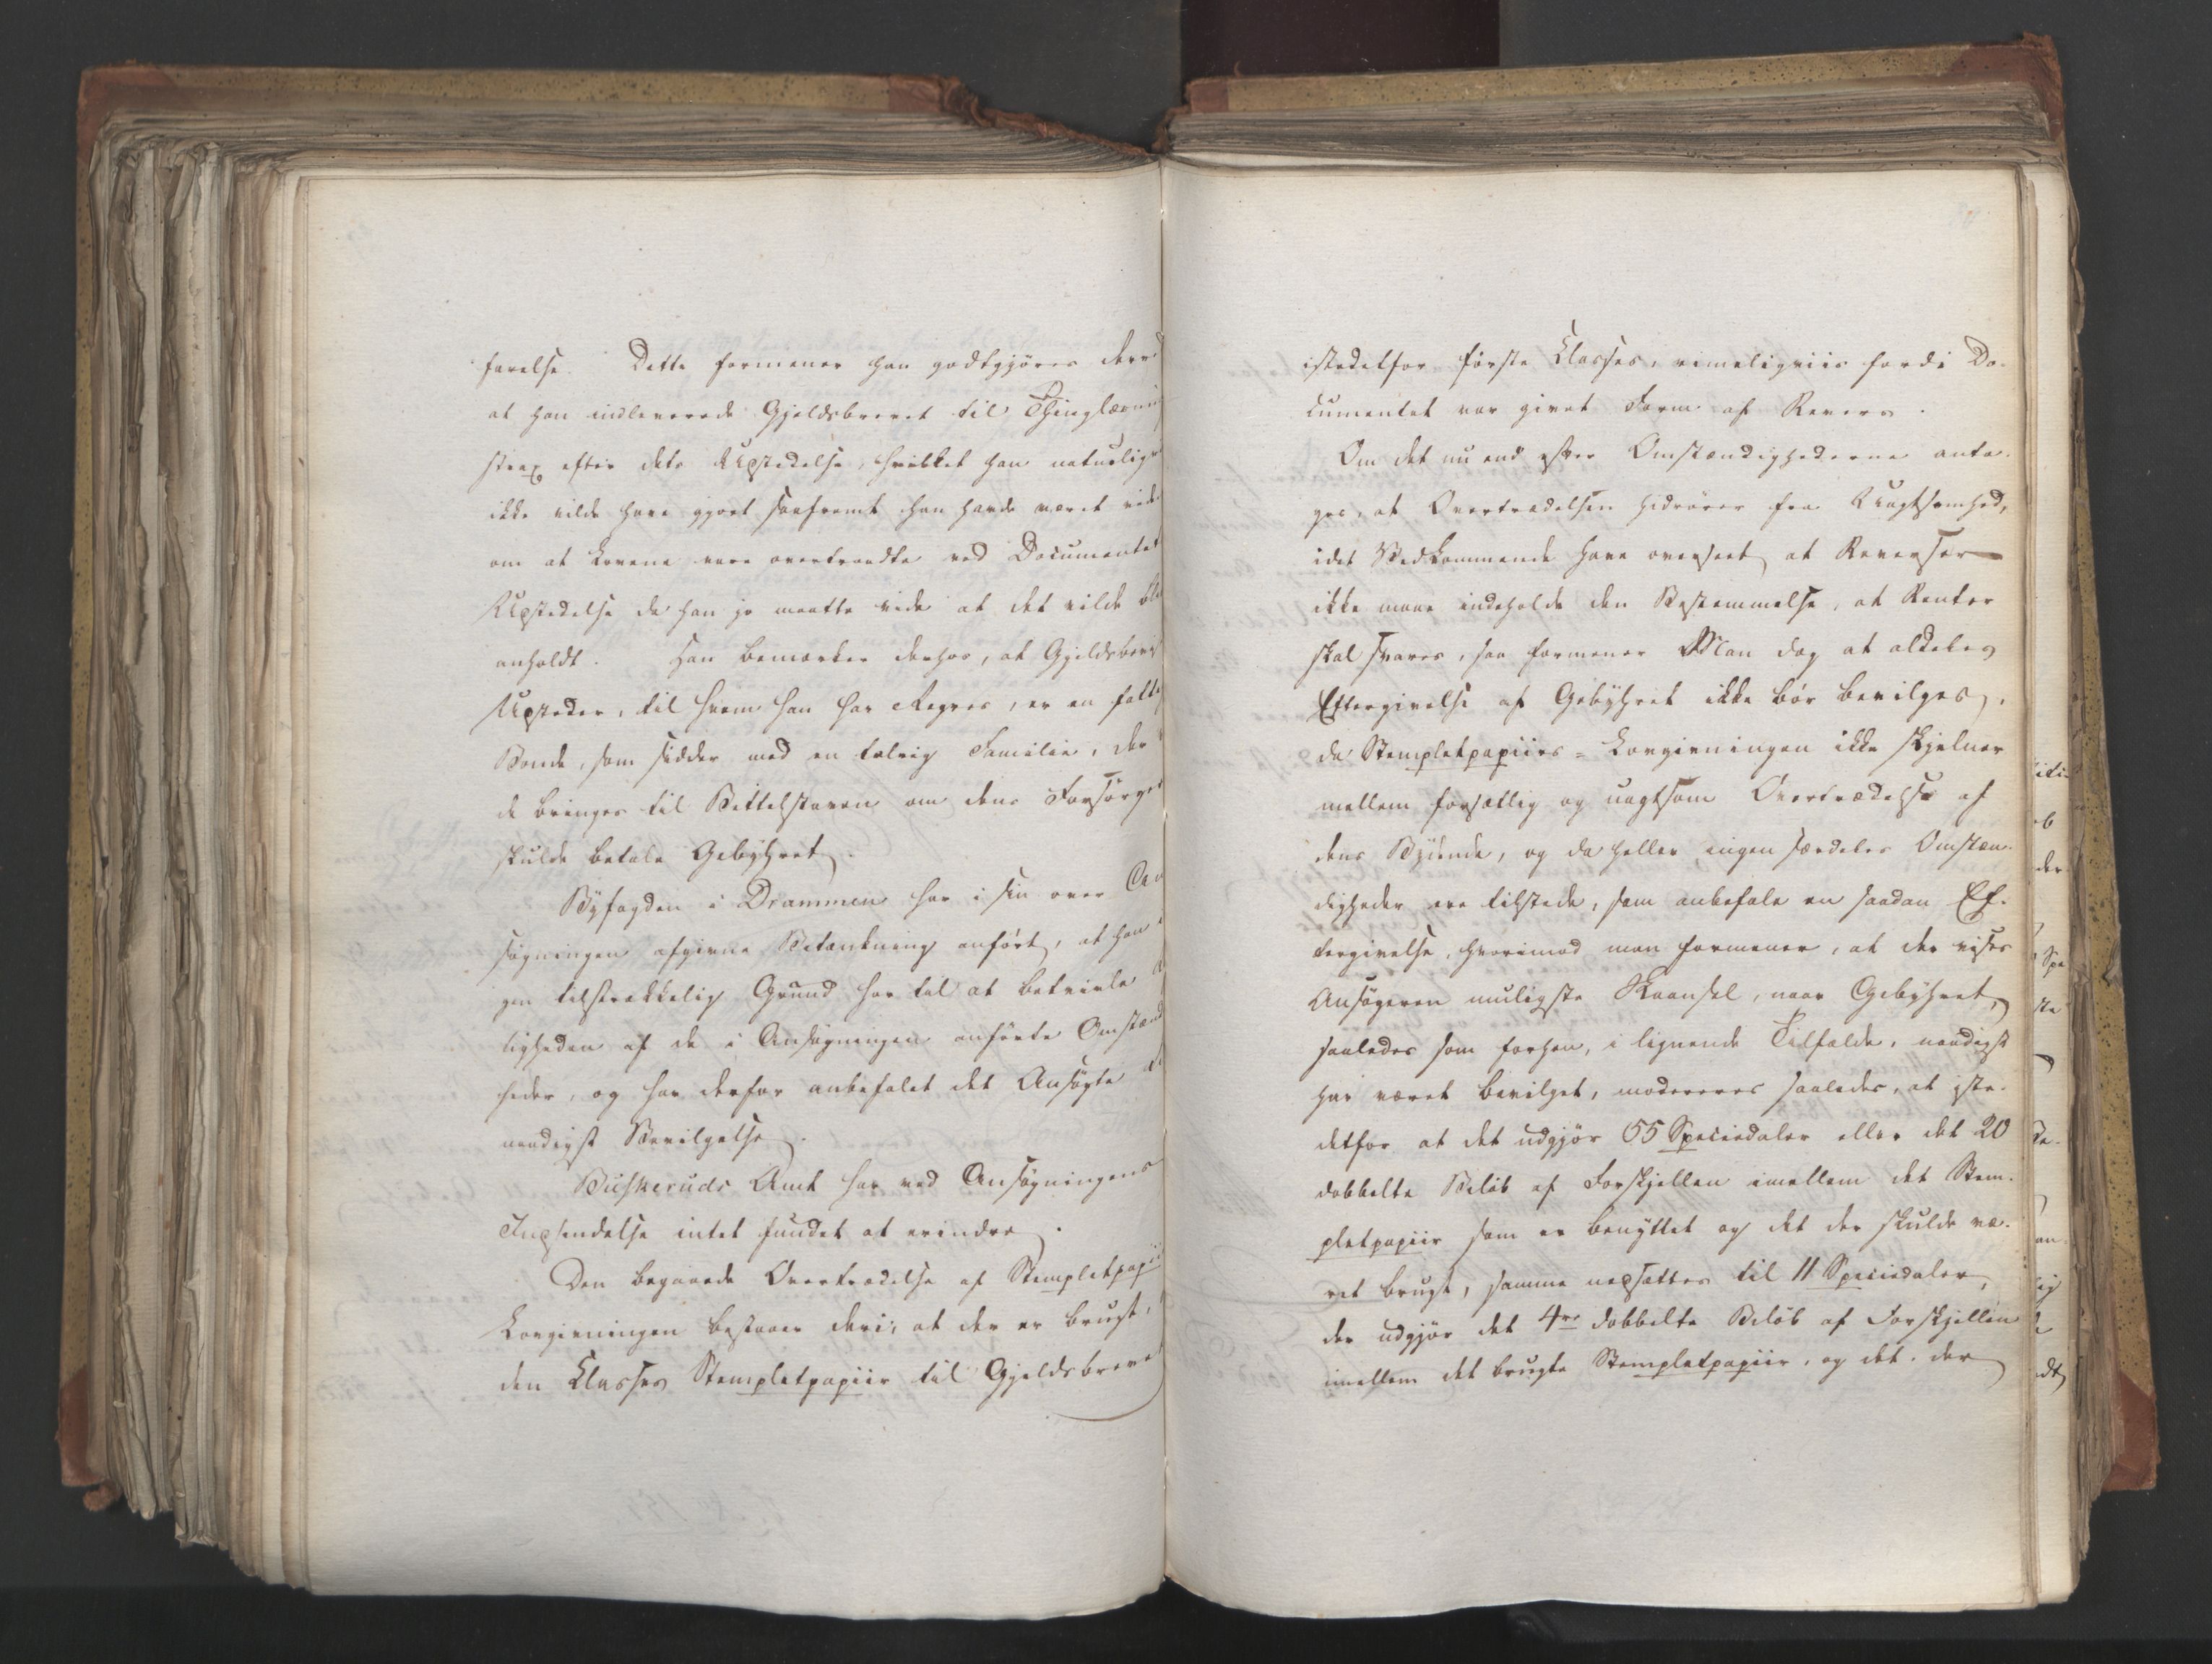 farelse. Dette formener han godtgjøres derv
at han indleverede Gjeldsbrevet til Thinglæsnin
strax efter dets Udstedelse, hvilket han naturligv
ikke vilde have gjort saafremt han havde været vide
om at Lovene vare overtraadte ved Documentet
Udstedelse da han jo maatte vide at det vilde bli
anholdt. Han bemærker derhos, at Gjeldsbrev
Udsteder, til hvem han har Regres, er en fatti
Bonde, som sidder med en talrig Familie, der
de bringes til Bettelstaven om dens Forsørger
skulde betale Gebyhret.
Byfogden i Drammen har i sin over An
søgningen afgivne Betænkning anført, at han i
gen tilstrækkelig Grund har til at betvivle
ligheden af de i Ansøgningen anførte Omstænd
heder, og har derfor anbefalet det Ansøgte
naadigst Bevilgelse.
Buskeruds Amt har ved Ansøgningens
Indsendelse intet fundet at erindre.
Den begaaede Overtrædelse af Stempletpapii
Lovgivningen bestaaer deri, at der er brugt,
den Classes Stempletpapiir til Gjeldsbrevet
istedetfor første Classes, rimeligviis fordi Do-
cumentet var givet Form af Revers.
Om det nu end efter Omstændighederne anta-
ges, at Overtrædelsen hidrører fra Uagtsomhed,
idet Vedkommende have overseet at Reverser
ikke maae indeholde den Bestemmelse, at Renter
skal svares, saa formener Man dog at aldeles
Eftergivelse af Gebyhret ikke bør bevilges,
da Stempletpapiirs-Lovgivningen ikke skjelner
mellem forsætlig og uagtsom Overtrædelse af
dens Bydende, og da heller ingen særdeles Omstæn-
digheder ere tilstede, som anbefale en saadan Ef-
tergivelse, hvorimod man formener, at der vises
Ansøgeren muligste Skaansel, naar Gebyhret,
saaledes som forhen, i lignende Tilfælde, naadigst
har været bevilget, modereres saaledes, at iste-
detfor at det udgjør 55 Speciedaler eller det 20
dobbelte Beløb af Forskjellen imellem det Stem-
pletpapiir som er benyttet og det der skulde væ-
ret brugt, samme nedsættes til 11 Speciedaler,
der udgjør det 4re dobbelte Beløb af Forskjellen
imellem det brugte Stempletpapiir, og det, der